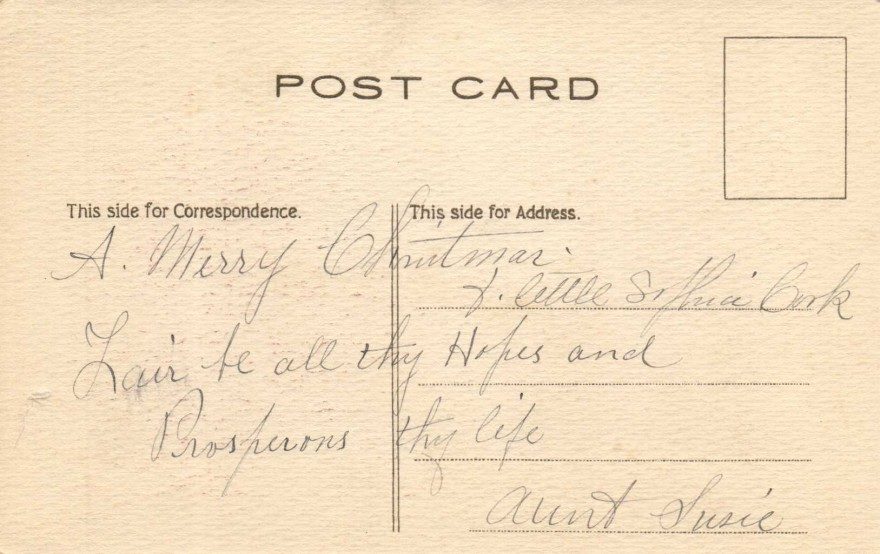 POST CARD
This side for Correspondence.
This side for Address.
A. Merry Christmas.
little Sophia Cook
Fair be all thy Hopes and
Prosperous thy life
Aunt Susie